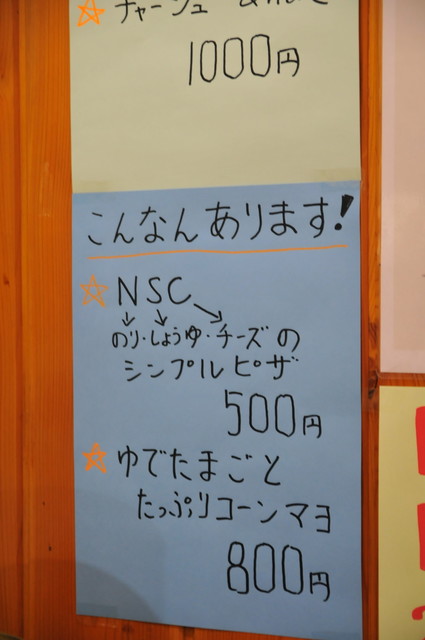 ☆チャーシュー
1000円
こんなんあります!
☆NSC
↓ ↓ ↘
のり・しょうゆ・チーズの
シンプルピザ
500円
☆ゆでたまごと
たっぷりコーンマヨ
800円